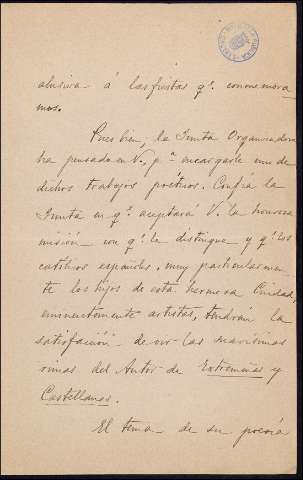 alusiva á las fiestas q.e conmemora
mos.
Pues bien, la Junta Organizadora
ha pensado en V., p.a encargarle uno de
dichos trabajos poéticos. Confía la
Junta en q.e aceptará V. la honrosa
misión con q.e le distingue y q.e los
católicos españoles, muy particularmen
te los hijos de esta hermosa Ciudad,
eminentemente artistas, tendrán la
satisfacción de oir las
rimas del Autor de Extremeñas y
Castellanas.
El tema de su poesía